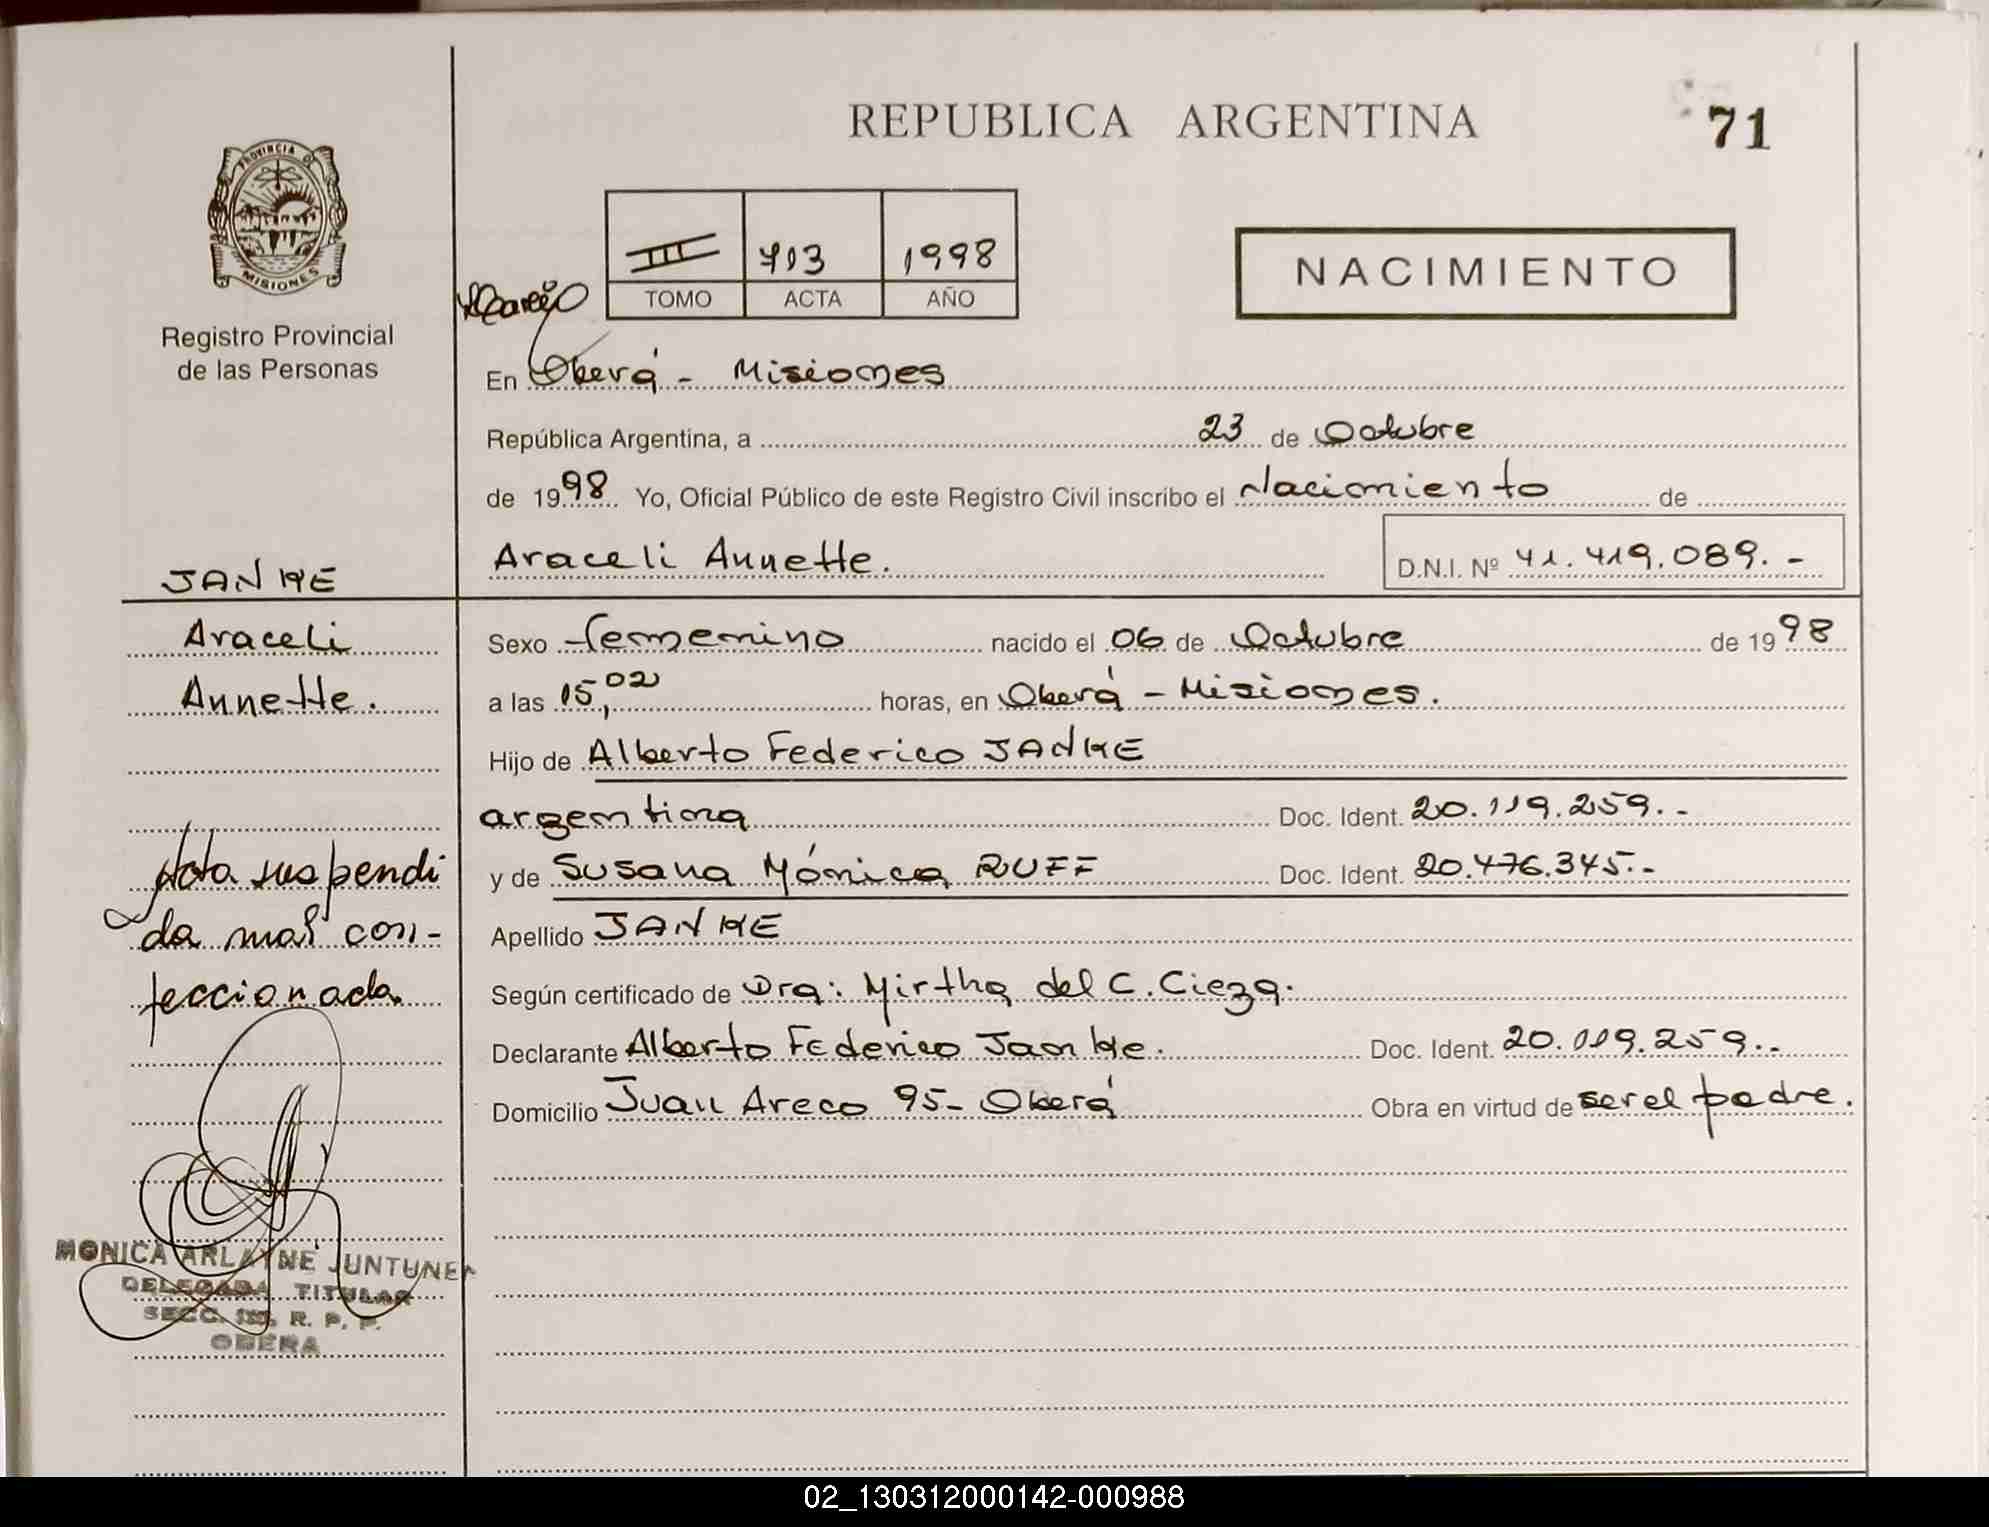 REPUBLICA ARGENTINA
71
PROVINCIA DE
MISIONES
Registro Provincial
de las Personas
III 713 1998
TOMO ACTA AÑO
NACIMIENTO
En Oberá - Misiones
República Argentina, a 23 de Octubre
de 1998 Yo, Oficial Público de este Registro Civil inscribo el Nacimiento de
Araceli Annette. D.N.I. Nº 41.419.089.-
JANKE
Araceli
Annette.
Sexo femenino nacido el 06 de Octubre de 1998
a las 15,02 horas, en Oberá - Misiones.
Hijo de Alberto Federico JANKE
argentina Doc. Ident. 20.119.259.-
y de Susana Mónica RUFF Doc. Ident. 20.476.345.-
Apellido JANKE
Según certificado de Dra: Mirtha del C. Cieza.
Declarante Alberto Federico Janke. Doc. Ident. 20.119.259.-
Domicilio Juan Areco 95- Oberá Obra en virtud de ser el padre.
Acta suspendi
da mal con-
feccionada.
MONICA ARLAYNE JUNTUNEN
DELEGADA TITULAR
SECC. R. P. P.
OBERA
02_130312000142-000988